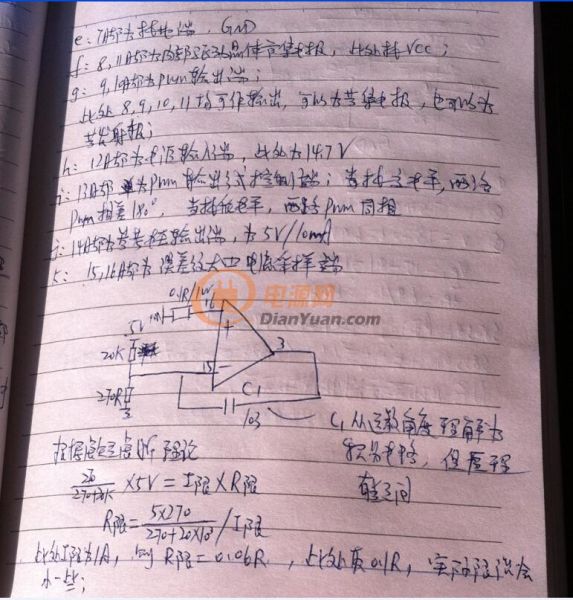 e: 7脚为接地端，GND
f: 8,11脚为内部驱动晶体管集电极，此处接VCC；
g: 9,10脚为Pwm输出端；
此处8,9,10,11均可作输出，可以为共集电极，也可以为
共发射极；
h: 12脚为电源输入端，此处为14.7V
i: 13脚为Pwm输出方式控制端；当接高电平，两路
Pwm相差180°，当接低电平，两路Pwm同相
j: 14脚为参考电压输出端，为5V/10mA
k: 15,16脚为误差放大 电流采样端
电源网
DianYuan.com
0.1R/1W
16
5V
+
3
20K
15
-
270R
C1
103
C1从 角度理解为
积分电路，但原理
有疑问
根据 理论
270+20K ×5V=I限×R限
R限=5×270
270+20×10³ /I限
此处I限为1A，则R限=0.06R，此处取0.1R，实际限流会
小一些；